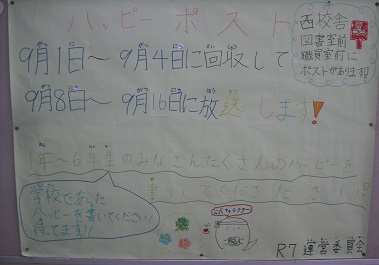 ハッピーポスト
西校舎
図書室前
職員室前に
ポストがあります!
9月1日～9月4日に回収して
9月8日～9月16日に放送します!
1年～6年生のみなさんたくさんのハッピーを
書いてください!!
学校であった
ハッピーを書いてください!
待ってます!!
公式キャラクター
R7運営委員会